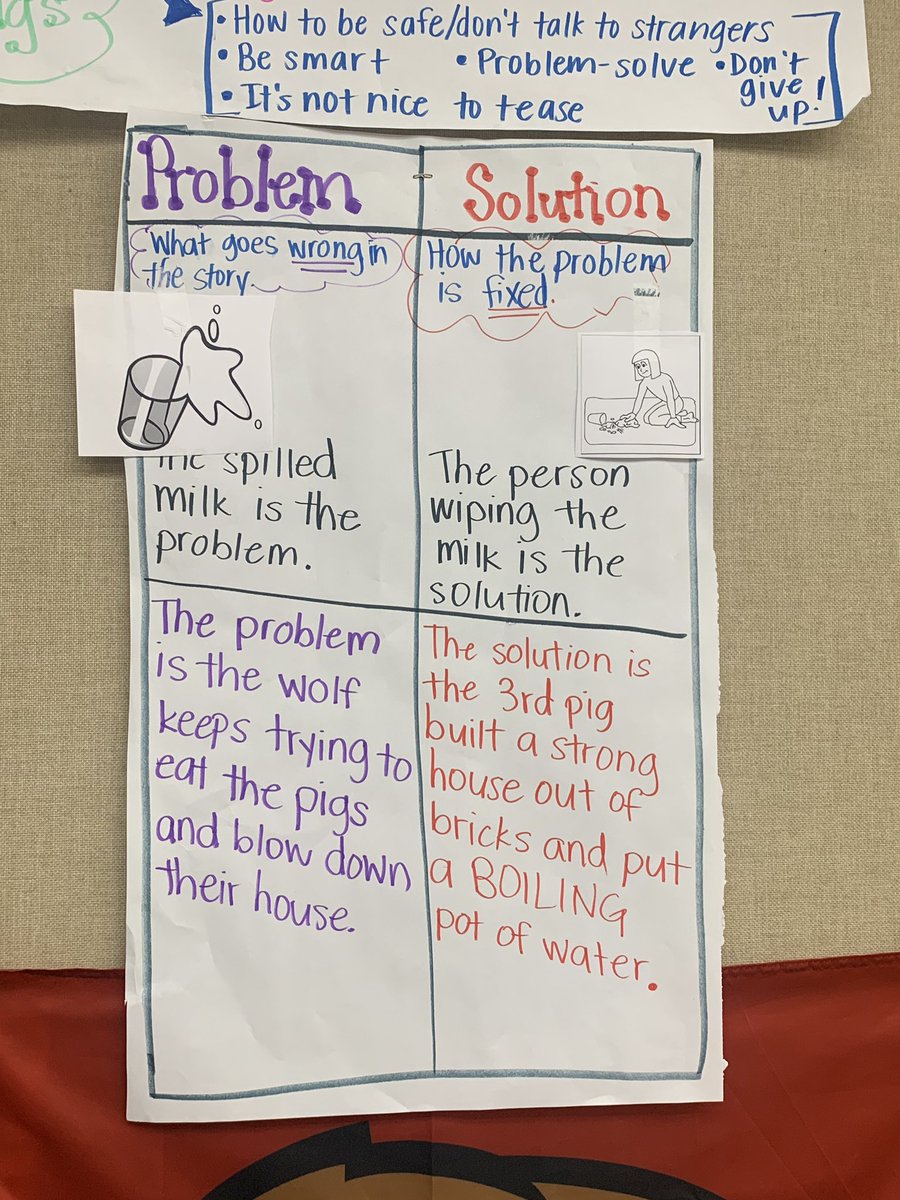 gs
• How to be safe/don't talk to strangers
• Be smart • Problem-solve • Don't give up!
• It's not nice to tease
Problem
What goes wrong in
the story.
The spilled
milk is the
problem.
Solution
How the problem
is fixed.
The person
wiping the
milk is the
solution.
The problem
is the wolf
keeps trying to
eat the pigs
and blow down
their house.
The solution is
the 3rd pig
built a strong
house out of
bricks and put
a BOILING
pot of water.